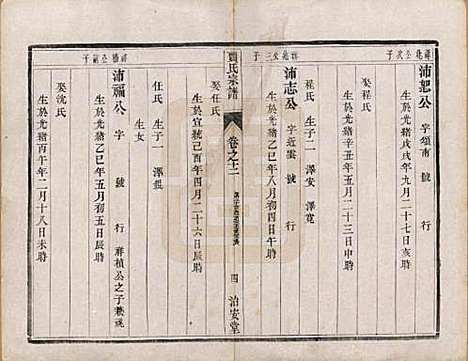 祥兆公次子
沛恕公 字頌南 號 行
生於光緒戊戌年九月二十七日午時
娶程氏
生於光緒辛丑年五月二十三日申時
程氏 生子二 澤安 澤寬
祥兆公三子
沛志公 字近雲 號 行
生於光緒乙巳年八月初四日辰時
娶任氏
生於宣統己酉年四月二十六日辰時
賈氏宗譜
卷之十二
四
治安堂
任氏 生子二 澤
生女
祥楨公嗣子
沛福公 字 號 行 祥楨公之子兼祧
生於光緒乙巳年五月初五日辰時
娶沈氏
生於光緒丙午年二月十八日未時